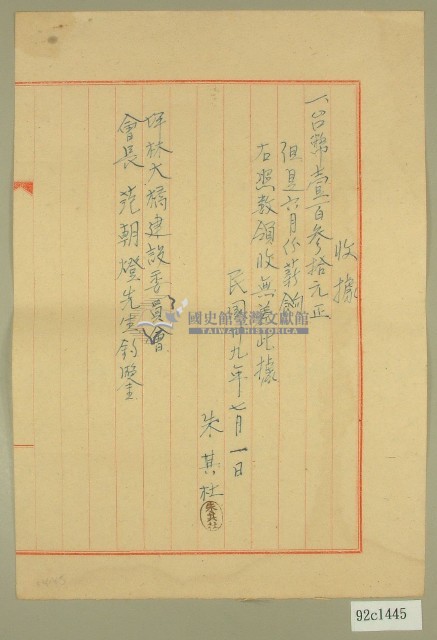 收據
一台幣壹百參拾元正
但且六月份薪餉
右照數領收無義此據
民國卅九年七月一日
朱其杜
坪林大橋建設委員會
會長 范朝燈先生鈞鑒
國史館臺灣文獻館
TAIWAN HISTORICA
92c1445